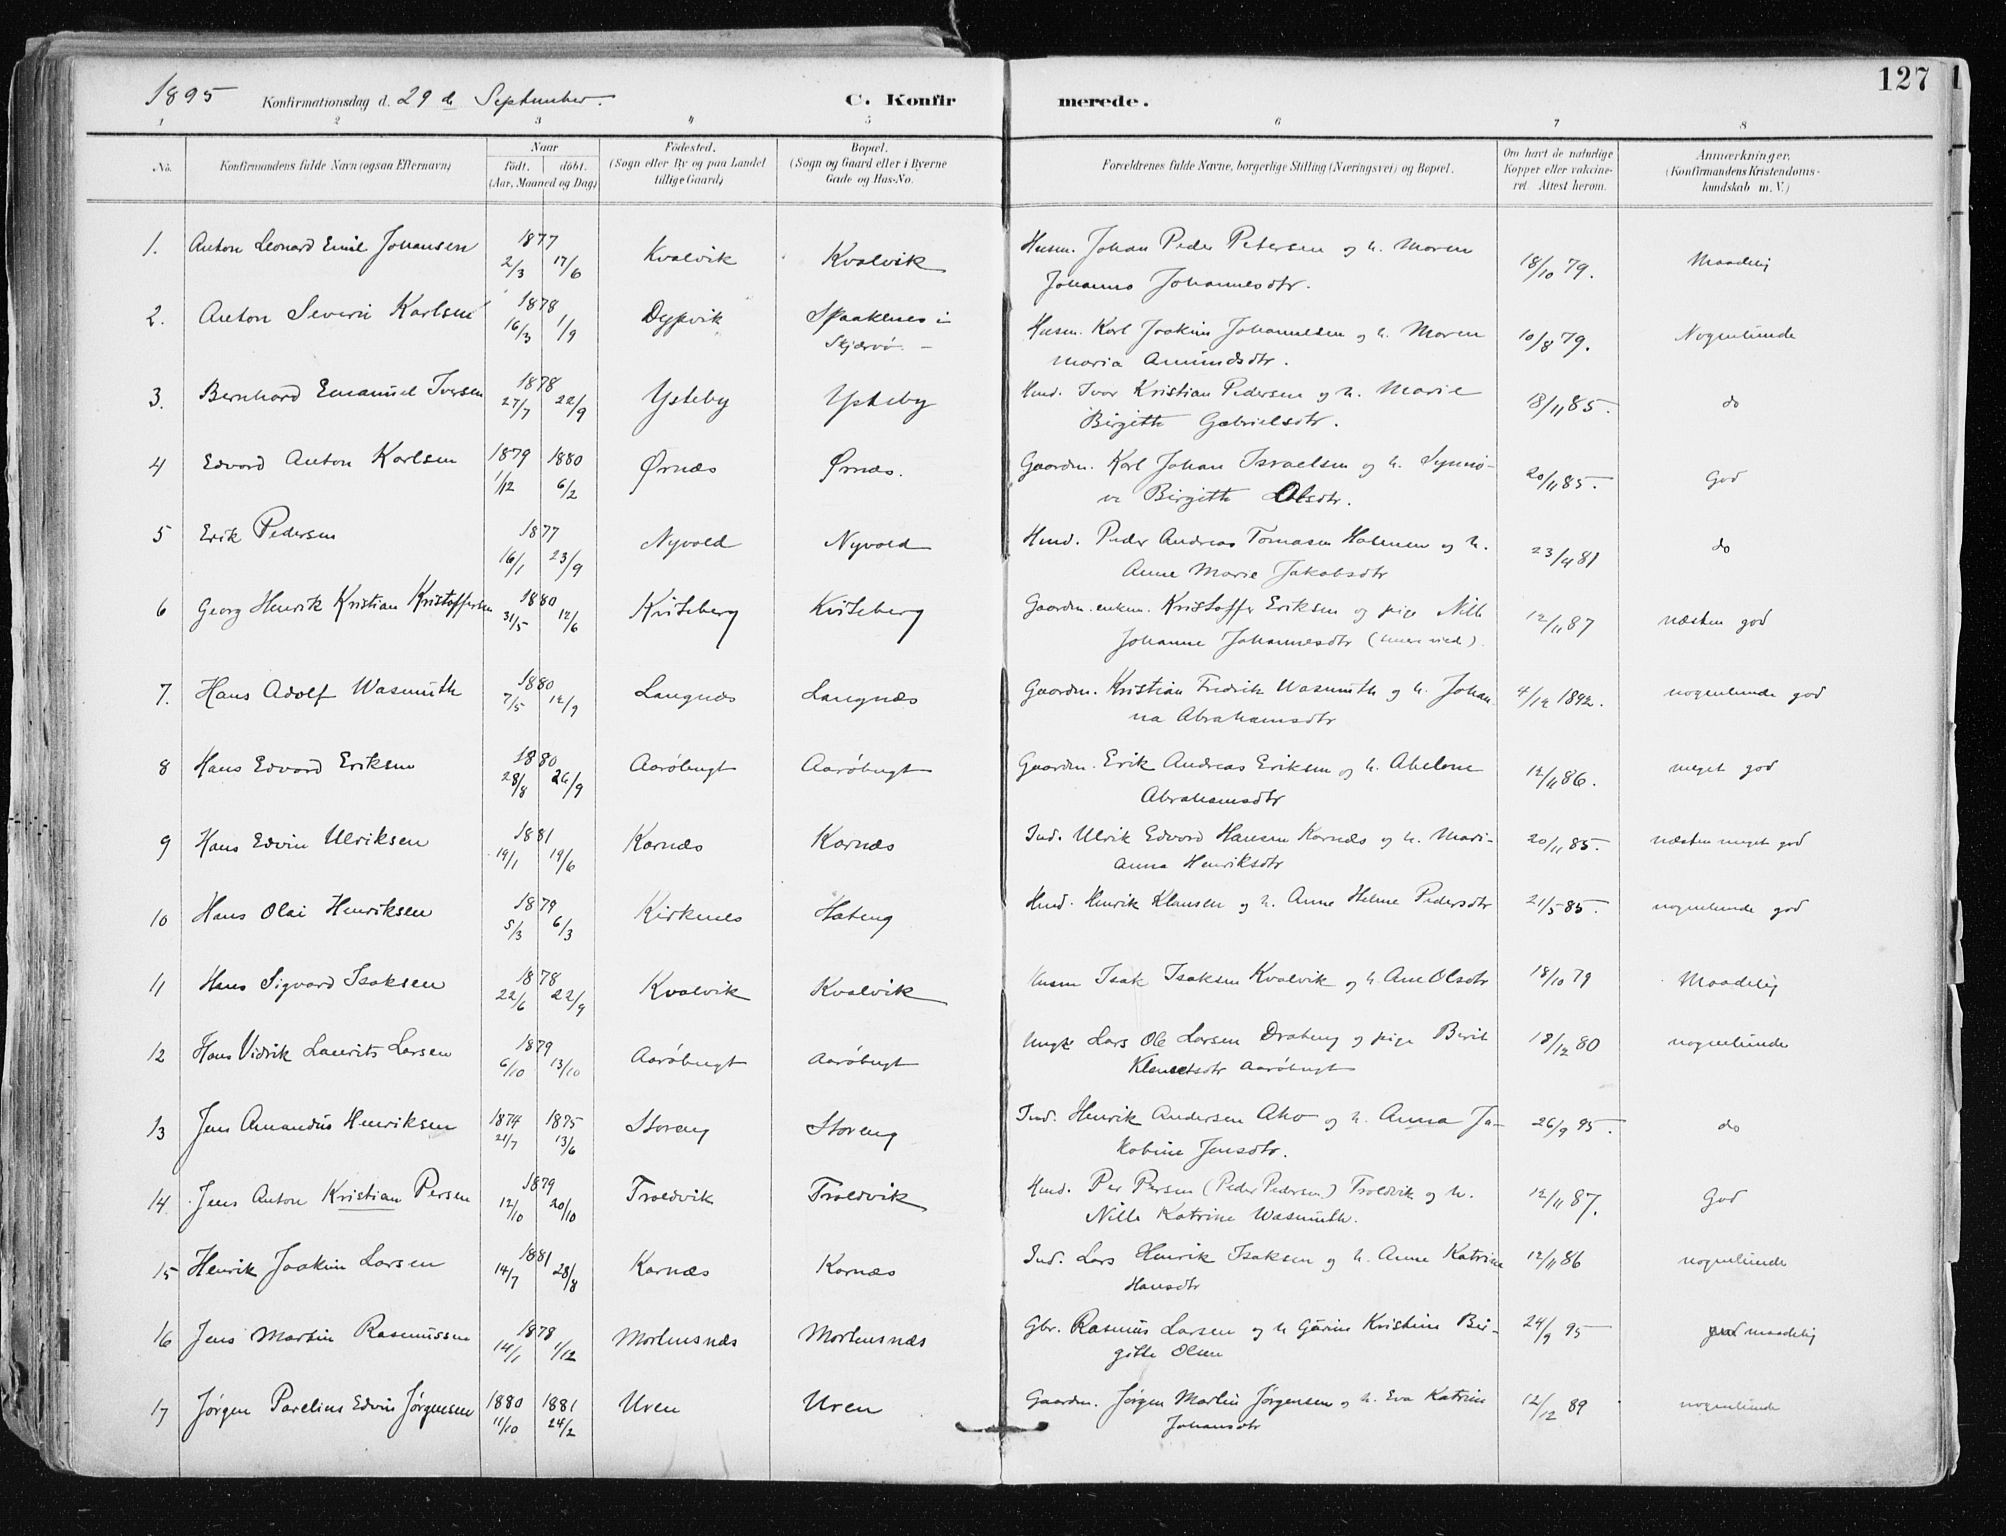 127
1895 Konfirmationsdag d. 29de September. C. Konfirmerede.
1 2 3 4 5 6 7 8
No. Konfirmandens fulde Navn (ogsaa Efternavn) Naar födt. döbt. (Aar, Maaned og Dag) Födested. (Sogn eller By og paa Landet tillige Gaard) Bopæl. (Sogn og Gaard eller i Byerne Gade og Hus-No. Forældrenes fulde Navne, borgerlige Stilling (Næringsvei) og Bopæl. Om havt de naturlige Kopper eller vakcineret. Attest herom. Anmærkninger. (Konfirmandens Kristendomskundskab m. V.)
1. Anton Leonard Emil Johansen 1877 2/3 17/6 Kvalvik Kvalvik Husm. Johan Peder Petersen og h. Maren
Johanna Johannesdtr. 18/10 79. Maadelig
2. Anton Severin Karlsen 1878 16/3 1/9 Dypvik Spaaknes i
Skjærvö. Husm. Karl Joakim Johannesen og h. Maren
Maria Amundsdtr. 10/8 79. Nogenlunde
3. Bernhard Emanuel Iversen 1878 27/7 22/9 Ysteby Ysteby Hmd. Ivar Kristian Pedersen og h. Marie
Birgitte Gabrielsdtr. 18/11 85. do
4 Edvard Anton Karlsen 1879 1/12 1880 6/2 Ørnæs Ørnæs. Gaardm. Karl Johan Israelsen og h. Synnö-
ve Birgitte Olsdtr. 20/11 85. God
5 Erik Pedersen 1877 16/1 23/9 Nyvold Nyvold Hmd. Peder Andreas Tomasen Halmen og h.
Anne Marie Jakobsdtr 23/4 81 do
6 Georg Henrik Kristian Kristoffersen 1880 31/5 12/6 Kviteberg Kviteberg Gaardm. enkem. Kristoffer Eriksen og pige Nille
Johanne Johannesdtr 12/11 87 næsten god
7. Hans Adolf Wasmuth 1880 7/5 12/9 Langnæs Langnæs Gaardm. Kristian Fredrik Wasmuth og h. Johan-
na Abrahamsdtr 4/12 1892. nogenlunde god
8 Hans Edvard Eriksen 1880 28/8 26/9 Aaröbugt Aaröbugt Gaardm. Erik Andreas Eriksen og h. Abelone
Abrahamsdtr 12/11 86. meget god
9 Hans Edvin Ulriksen 1881 19/1 19/6 Karnæs Karnæs Ind. Ulrik Edvard Hansen Karnæs og h. Mari-
anna Henriksdtr 20/11 85. næsten meget god
10 Hans Olai Henriksen 1879 5/3 6/3 Kirknes Hateng Hmd. Henrik Klausen og h. Anne Helene Pedersdtr 21/5 85. nogenlunde god
11 Hans Sigvard Isaksen 1878 22/6 22/9 Kvalvik Kvalvik Husm Isak Isaksen Kvalvik og h. Ane Olsdtr 18/10 79 Maadelig
12 Hans Vidrik Laurits Larsen 1879 6/10 13/10 Aaröbugt Aaröbugt Ungk Lars Ole Larsen Drabeng og pige Berit
Klemetsdtr Aaröbugt 18/12 80 nogenlunde
13 Jens Amandus Henriksen 1874 21/7 1875 13/6 Storeng Storeng Ind. Henrik Andersen Aho og h. Anna Ja-
kobine Jensdtr. 26/9 95. do
14 Jens Anton Kristian Persen 1879 12/10 20/10 Troldvik Troldvik Hmd. Per Persen (Peder Pedersen) Troldvik og h.
Nille Katrine Wasmuth. 12/11 87. God
15 Henrik Joakim Larsen 1881 14/7 28/8 Karnæs Karnæs Ind. Lars Henrik Isaksen og h. Anne Katrine
Hansdtr 12/11 86 nogenlunde
16 Jens Martin Rasmussen 1878 14/1 1/12 Mortensnæs Mortensnæs Gbr. Rasmus Larsen og h Gurine Kristine Bir-
gitte Olsen 24/9 95 maadelig
17 Jørgen Parelius Edvin Jørgensen 1880 11/10 1881 24/2 Uren Uren Gaardm. Jørgen Martin Jørgensen og h. Eva Katrine
Johansdtr 12/12 89 nogenlunde